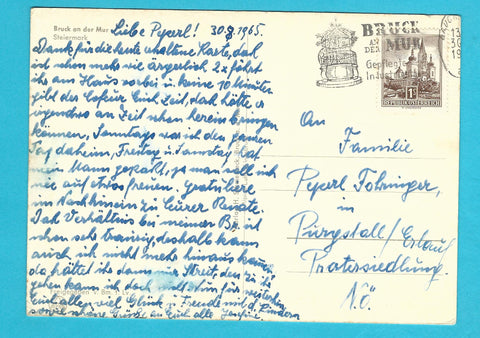 Bruck an der Mur
Steiermark
Liebe Peperl! 30.8.1965.
Dank für die heute erhaltene Karte, daß
ich schon mehr wie ärgerlich 2x fährt
ihr am Haus vorbei u. keine 10 Minuten
gibt der Chofeur Euch Zeit, daß hätte er
irgendwo an Zeit schon herein bringen
können, Sonntags war ich den ganzen
Tag daheim, Freitag u. Samstag hat
mein Mann gehabt, ja man soll sich
nie auf etwas freuen. Gratuliere
im Nachhinein zu Eurer Rente.
Das Verhältnis bei meiner
schon sehr traurig, deshalb kann
auch ich nicht mehr hinaus kommen,
da hätte ihr dann nur Streit, den
gehen kann ich doch weiterhin
Euch allen viel Glück u. Freude mit d. Kindern
sowie schöne Grüße an Euch alle
BRUCK
AN
DER MUR
Gepflegte
REPUBLIK ÖSTERREICH
An
Familie
Peperl Fohringer,
in
Purgstall / Erlauf
Pratersiedlung
N.Ö.